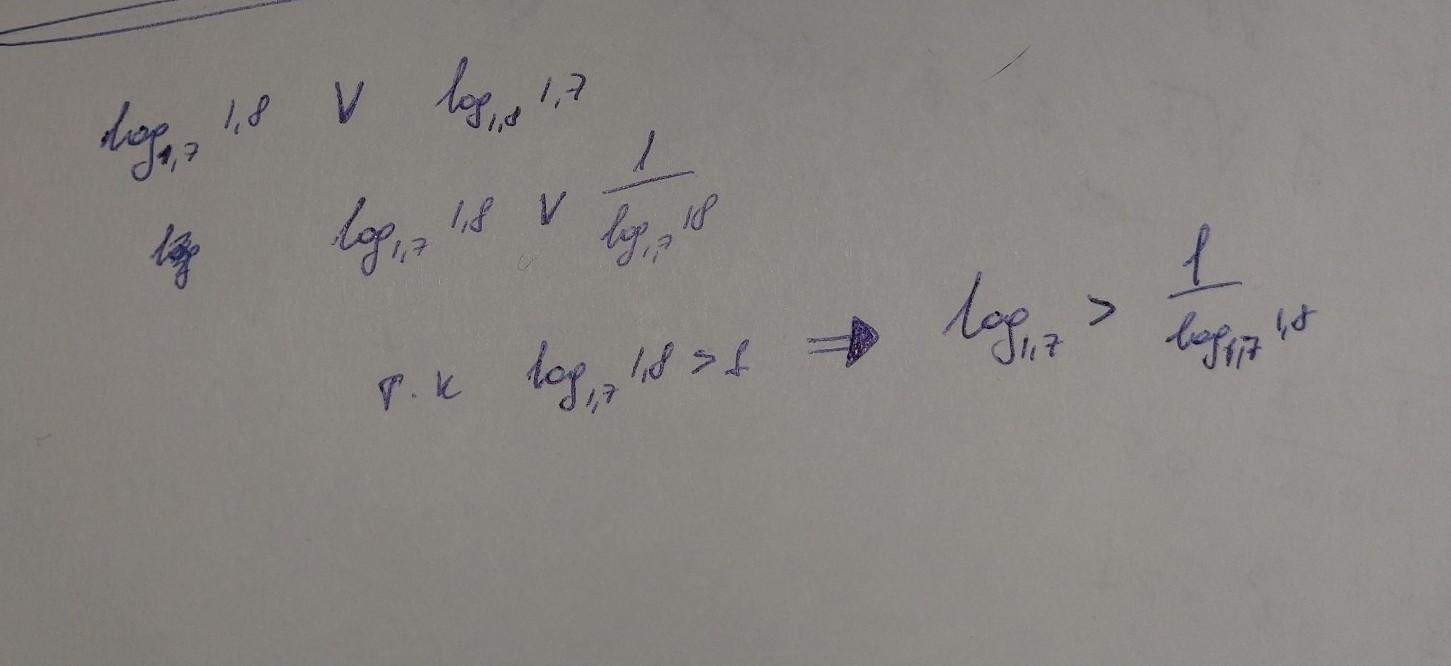 log₁,₇ 1,8 V log₁,₈ 1,7
log₁,₇ 1,8 V 1/log₁,₇ 18
т.к log₁,₇ 1,8 > 1 ⇒ log₁,₇ > 1/log₁,₇ 1,8